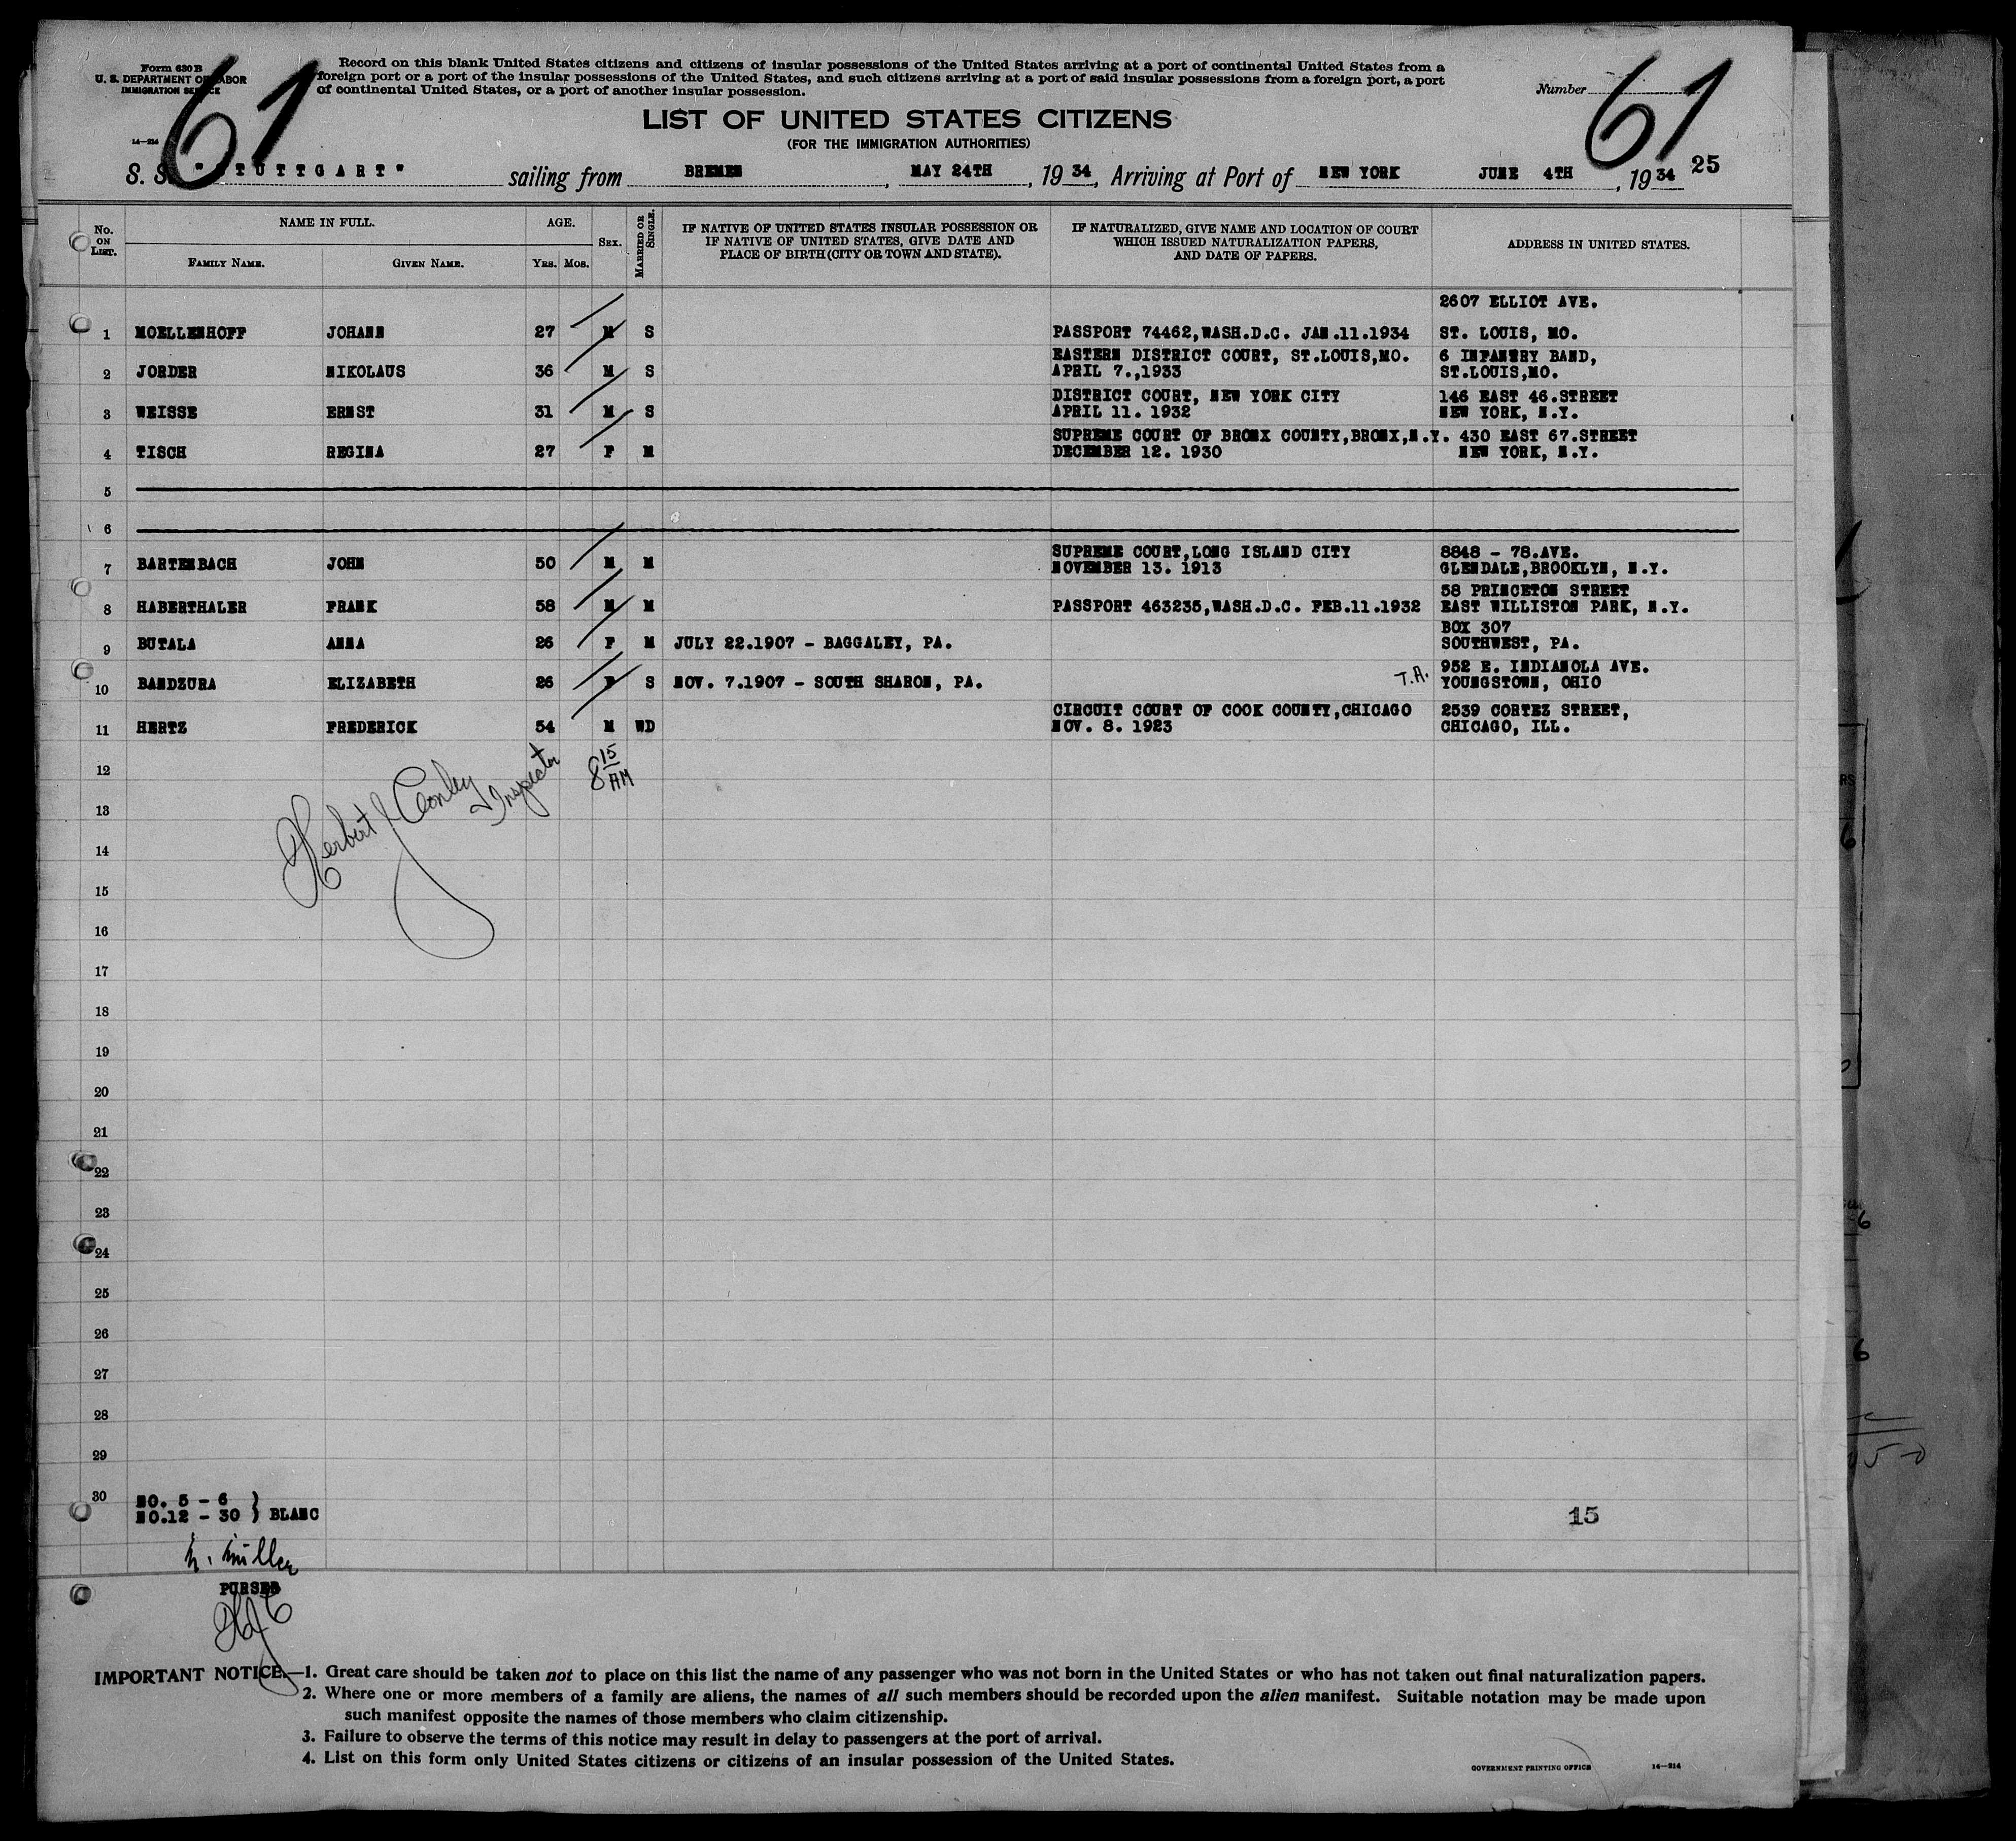 Form 630 B
U. S. DEPARTMENT OF LABOR
IMMIGRATION SERVICE
14—214
61
Record on this blank United States citizens and citizens of insular possessions of the United States arriving at a port of continental United States from a
foreign port or a port of the insular possessions of the United States, and such citizens arriving at a port of said insular possessions from a foreign port, a port
of continental United States, or a port of another insular possession.
Number 61
LIST OF UNITED STATES CITIZENS
(FOR THE IMMIGRATION AUTHORITIES)
S. S. "STUTTGART" sailing from BREMEN, MAY 24TH, 1934, Arriving at Port of NEW YORK JUNE 4TH, 1934 25
No. ON LIST. NAME IN FULL. AGE. SEX. MARRIED OR SINGLE. IF NATIVE OF UNITED STATES INSULAR POSSESSION OR IF NATIVE OF UNITED STATES, GIVE DATE AND PLACE OF BIRTH (CITY OR TOWN AND STATE). IF NATURALIZED, GIVE NAME AND LOCATION OF COURT WHICH ISSUED NATURALIZATION PAPERS, AND DATE OF PAPERS. ADDRESS IN UNITED STATES.
FAMILY NAME. GIVEN NAME. YRS. MOS.
2607 ELLIOT AVE.
1 MOELLENHOFF JOHANN 27 M S PASSPORT 74462,WASH.D.C. JAN.11.1934 ST. LOUIS, MO.
EASTERN DISTRICT COURT, ST.LOUIS,MO. 6 INFANTRY BAND,
2 JORDER NIKOLAUS 36 M S APRIL 7.,1933 ST.LOUIS,MO.
DISTRICT COURT, NEW YORK CITY 146 EAST 46.STREET
3 WEISSE ERNST 31 M S APRIL 11. 1932 NEW YORK, N.Y.
SUPREME COURT OF BRONX COUNTY,BRONX,N.Y. 430 EAST 67.STREET
4 TISCH REGINA 27 F M DECEMBER 12. 1930 NEW YORK, N.Y.
5
6
SUPREME COURT,LONG ISLAND CITY 8848 - 78.AVE.
7 BARTENBACH JOHN 50 M M NOVEMBER 13. 1913 GLENDALE,BROOKLYN, N.Y.
58 PRINCETON STREET
8 HABERTHALER FRANK 58 M M PASSPORT 463235,WASH.D.C. FEB.11.1932 EAST WILLISTON PARK, N.Y.
BOX 307
9 BUTALA ANNA 26 F M JULY 22.1907 - BAGGALEY, PA. SOUTHWEST, PA.
T.A. 952 E. INDIANOLA AVE.
10 BANDZURA ELIZABETH 26 F S NOV. 7.1907 - SOUTH SHARON, PA. YOUNGSTOWN, OHIO
CIRCUIT COURT OF COOK COUNTY,CHICAGO 2539 CORTEZ STREET,
11 HERTZ FREDERICK 54 M WD NOV. 8. 1923 CHICAGO, ILL.
Herbert J Conley Inspector
8 15 AM
12
13
14
15
16
17
18
19
20
21
22
23
24
25
26
27
28
29
30
NO. 5 - 6 }
NO.12 - 30 } BLANC
15
Müller
PURSER
IMPORTANT NOTICE.—1. Great care should be taken not to place on this list the name of any passenger who was not born in the United States or who has not taken out final naturalization papers.
2. Where one or more members of a family are aliens, the names of all such members should be recorded upon the alien manifest. Suitable notation may be made upon
such manifest opposite the names of those members who claim citizenship.
3. Failure to observe the terms of this notice may result in delay to passengers at the port of arrival.
4. List on this form only United States citizens or citizens of an insular possession of the United States.
GOVERNMENT PRINTING OFFICE 14—214